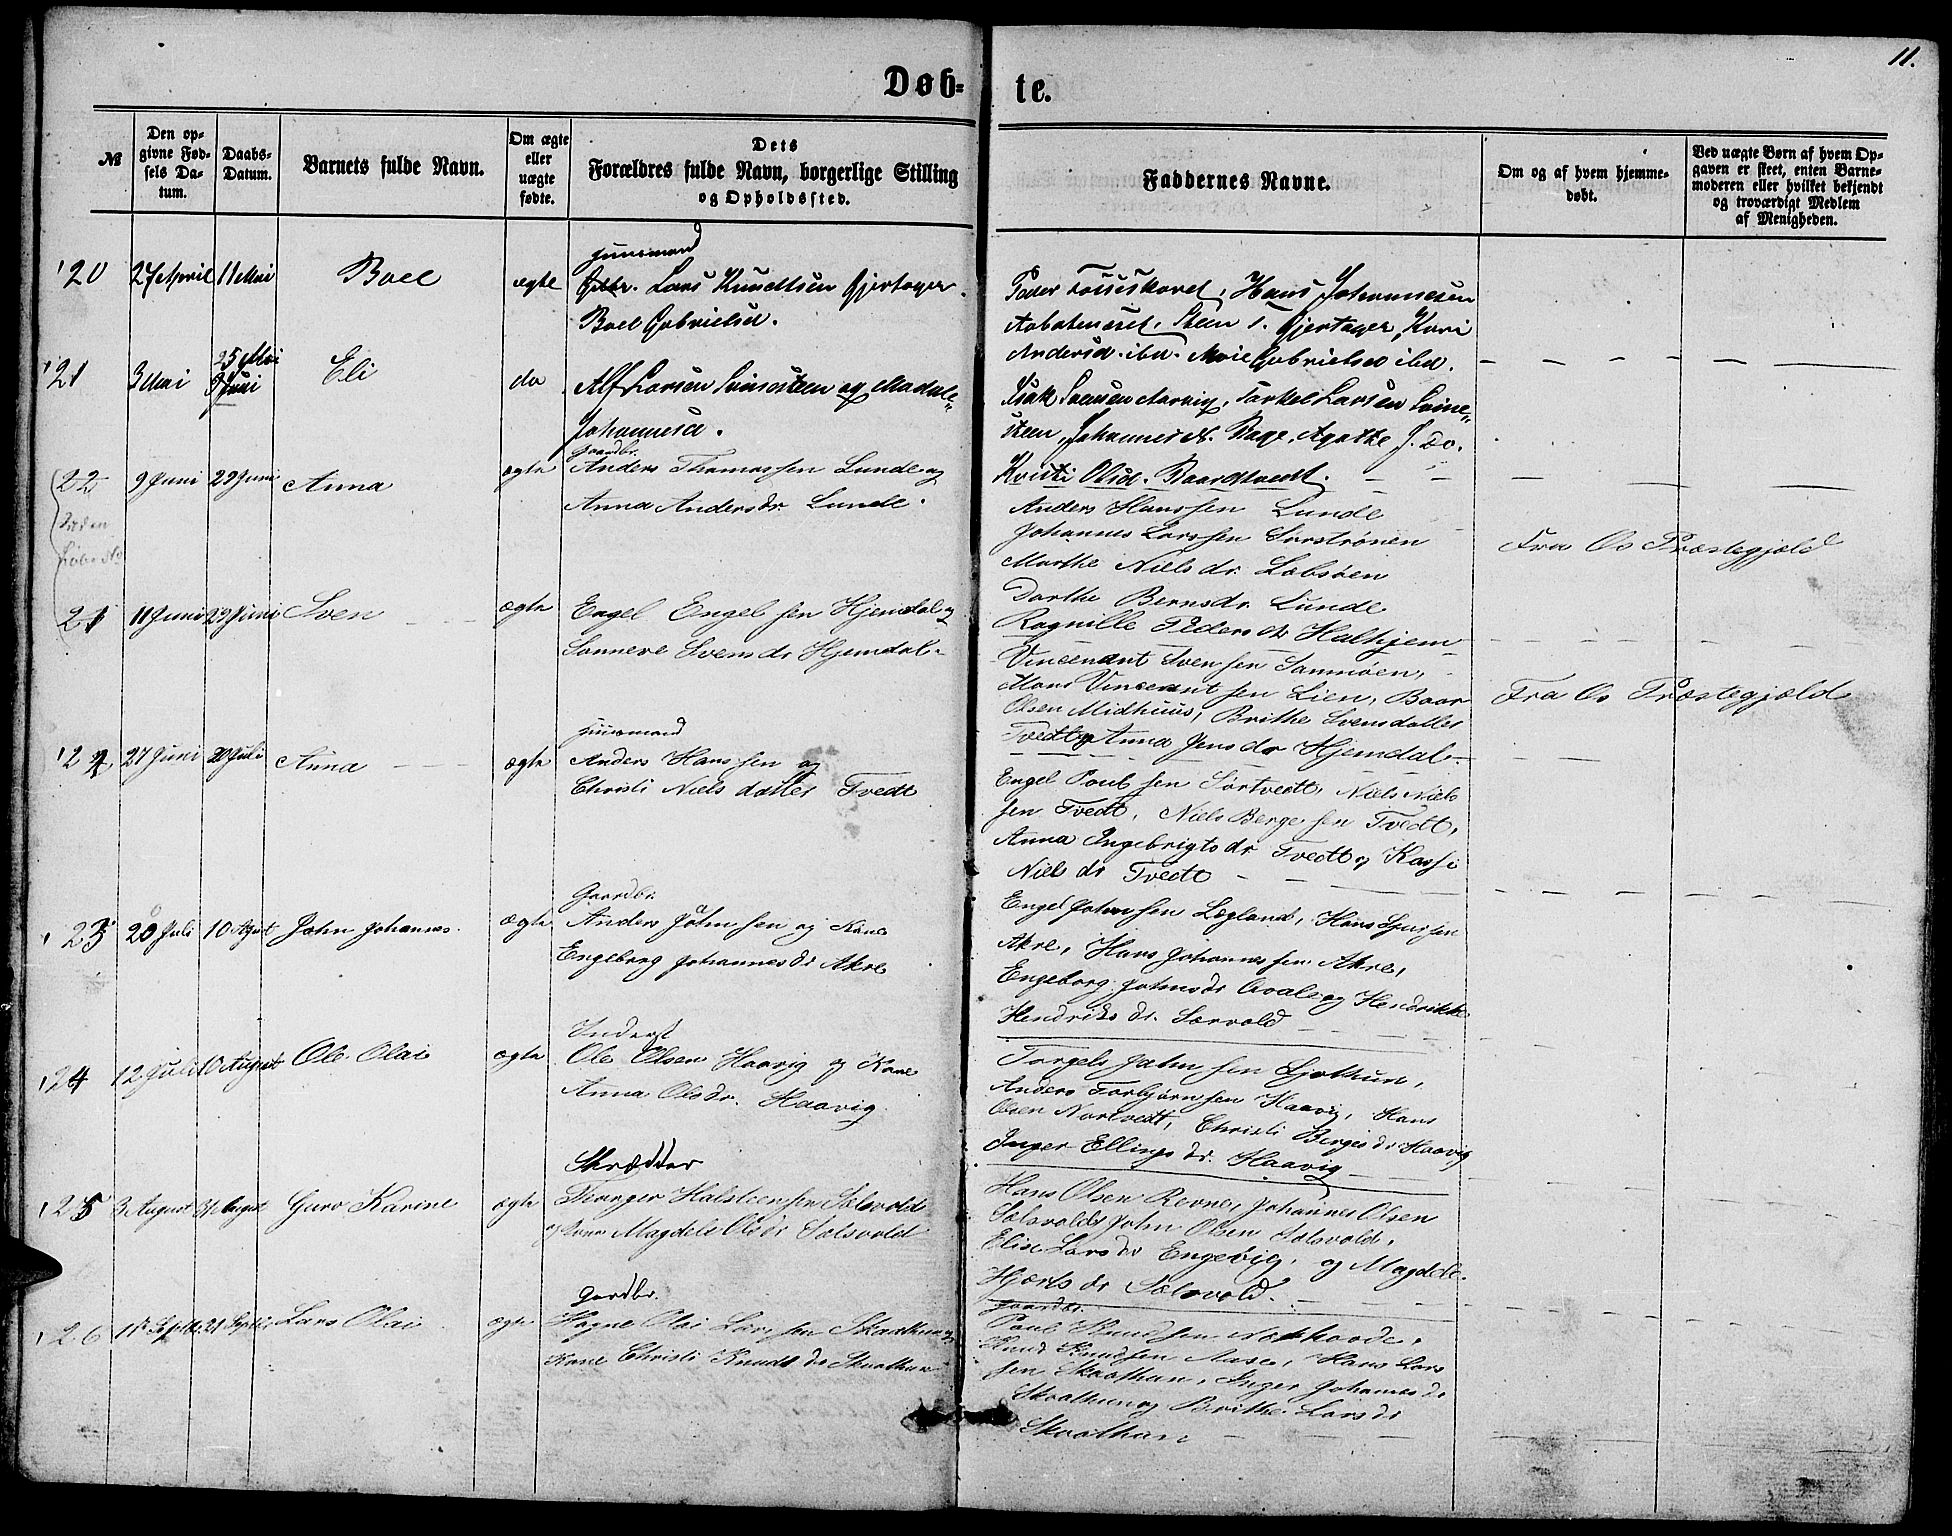 11.
Døb-
te.
№
Den opgivne Fødsels Datum.
Daabs-Datum.
Barnets fulde Navn.
Om ægte eller uægte fødte.
Dets Forældres fulde Navn, borgerlige Stilling og Opholdssted.
Faddernes Navne.
Om og af hvem hjemmedøbt.
Ved uægte Børn af hvem Opgaven er skeet, enten Barnemoderen eller hvilket bekjendt og troværdigt Medlem af Menigheden.
20 27 April 11 Mai Boel ægte
Huusmand
Lars Knudtsen Gjertager
Boel Gabrielsd.
Hans Johannesen
Gjertager, Kari
Andersd. ibd. Marie Gabrielsd ibd.
21 3 Mai 25 Mai Eli do
Alf Larsen Svinesteen og Madale
Johannesd.
Isak Svensen Aarvig, Torkel Larsen Svine
steen, Johannes A. Bage, Agathe J. do.
Kristi Olsd. Baardtvedt.
22 9 Juni 29 Juni Anna ægte
Uden
Løbe No
Gaardbr.
Anders Thomassen Lunde og
Anna Andersdr Lunde.
Anders Hanssen Lunde
Johannes Larssen Sørstrønen
Marthe Nielsdr. Lobsøen
Dorthe Bernsdr. Lunde
Ragnille Pedersdr Halhjem
Fra Os Præstegjeld
21 11 Juni 29 Juni Sven ægte
Engel Engelsen Hjemdal og
Sonneve Svensdr Hjemdal
Vincendt Svensen Sammøen,
Mons Vincentsen Lien, Baar
Olsen Midhuus, Brithe Svensdatter
Tvedt og Anna Jensdr Hjemdal
Fra Os Præstegjeld
22 27 Juni 20 Juli Anna ægte
Huusmand
Anders Hanssen og
Christi Nielsdatter Tvedt
Engel Poulsen Sørtvedt, Niels Niels
sen Tvedt, Niels Bergesen Tvedt,
Anna Ingebrigtsdr Tvedt og Kassi
Nielsdr Tvedt
23 20 Juli 10 Agust John Johannes ægte
Gaardbr.
Anders Johnsen og Kone
Engeborg Johannesdr Akre
Engel Johnsen Lægland, Hans Sjursen
Akre, Hans Johannessen Akre,
Engeborg Johnsdr Hvale og Hendrikke
Hendriksdr. Særvold
24 12 Juli 10 August Ole Olai ægte
Inderst
Ole Olsen Haavig og Kone
Anna Olsdr. Haavig
Torgels Johnsen Ljothun,
Anders Torbjørnsen Haavig, Hans
Olsen Nortvedt, Christi Bergesdr Haavig
Inger Ellingsdr. Haavig
25 3 August 31 August Guro Karine ægte
Skrædder
Halsteensen Salsvold
og Kone Magdeli Olsdr Salsvold
Hans Olsen Revne, Johannes Olsen
Salsvold, John Olsen Salsvold,
Elise Larsdr Engevig, og Magdele
Hjertsdr Salsvold.
26 21 Septbr Lars Olai ægte
Gardbr.
Hogne Olai Larssen Skaathun og
Kone Christi Knudsdr Skaathun
Gaardbr.
Poul Knudsen Nøkhovde,
Knud Knudsen Aase, Hans Lars
sen Skaathun, Inger Johannesdr
Skaathun og Brithe Larsdr
Skaathun